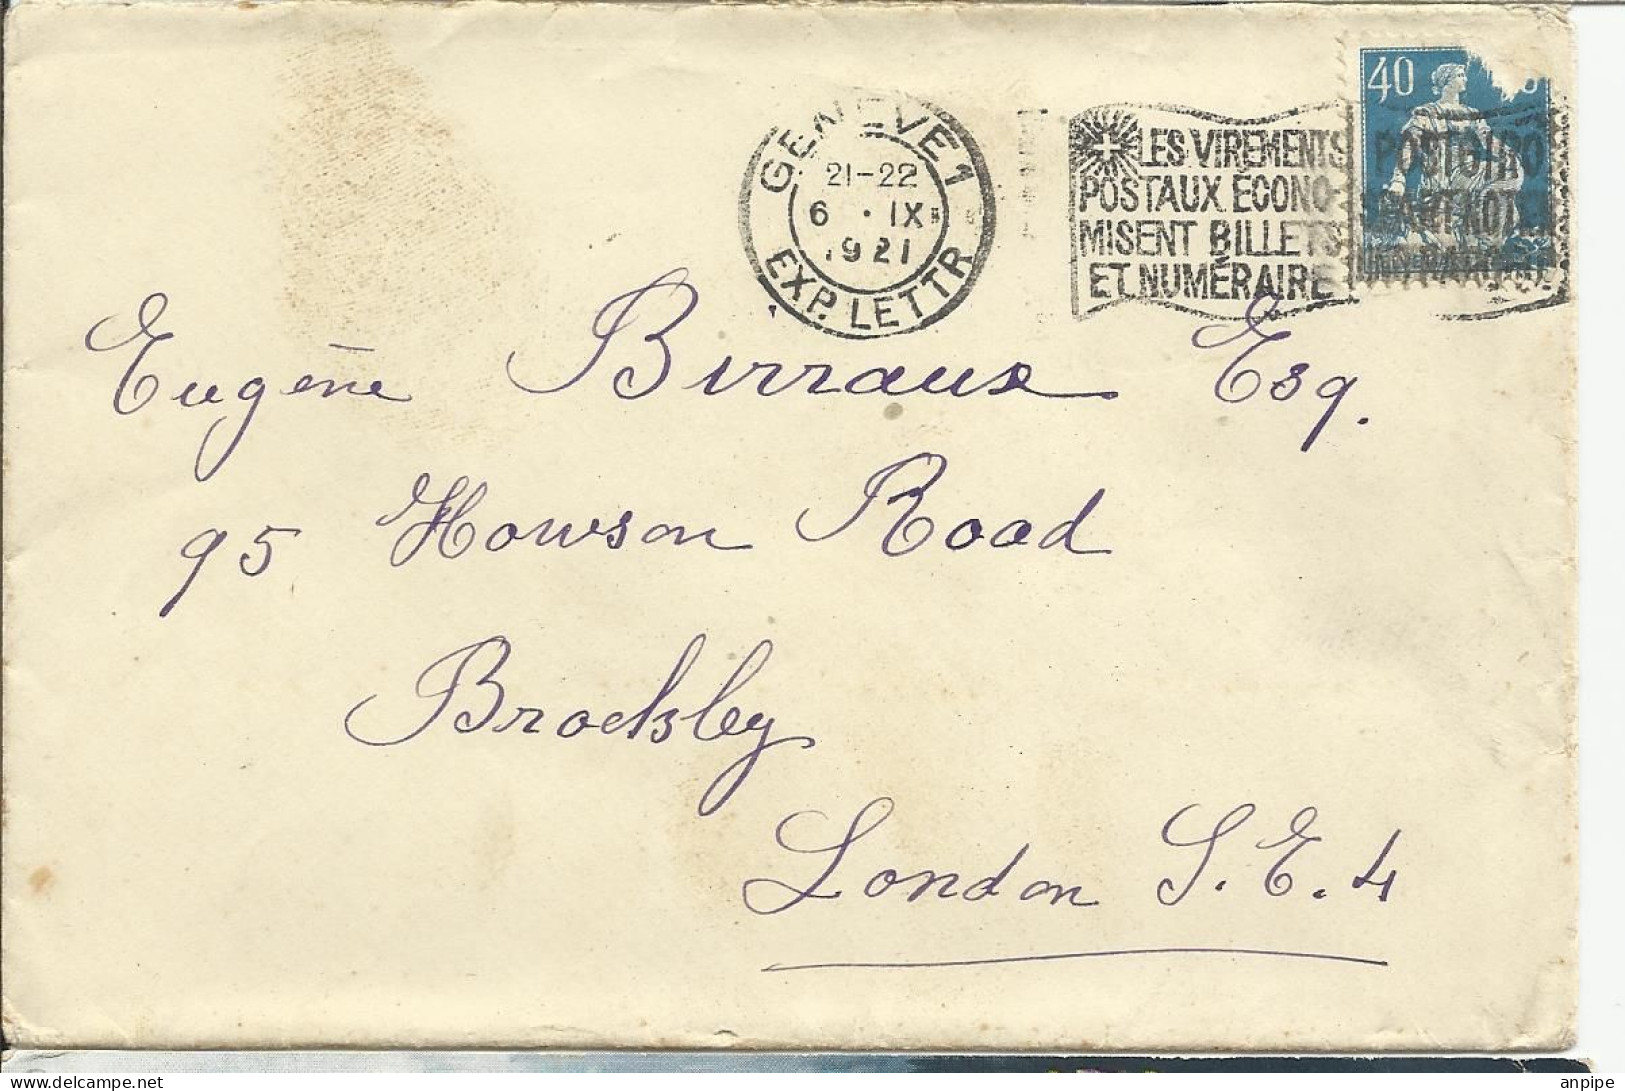 GENÈVE 1
21-22
6 · IX
1921
EXP. LETTR
LES VIREMENTS
POSTAUX ÉCONO-
MISENT BILLETS
ET NUMÉRAIRE
40
POSTGIRO
Eugène Birraux Esq.
95 Howson Road
Brocksley
London S.E.4
anpipe